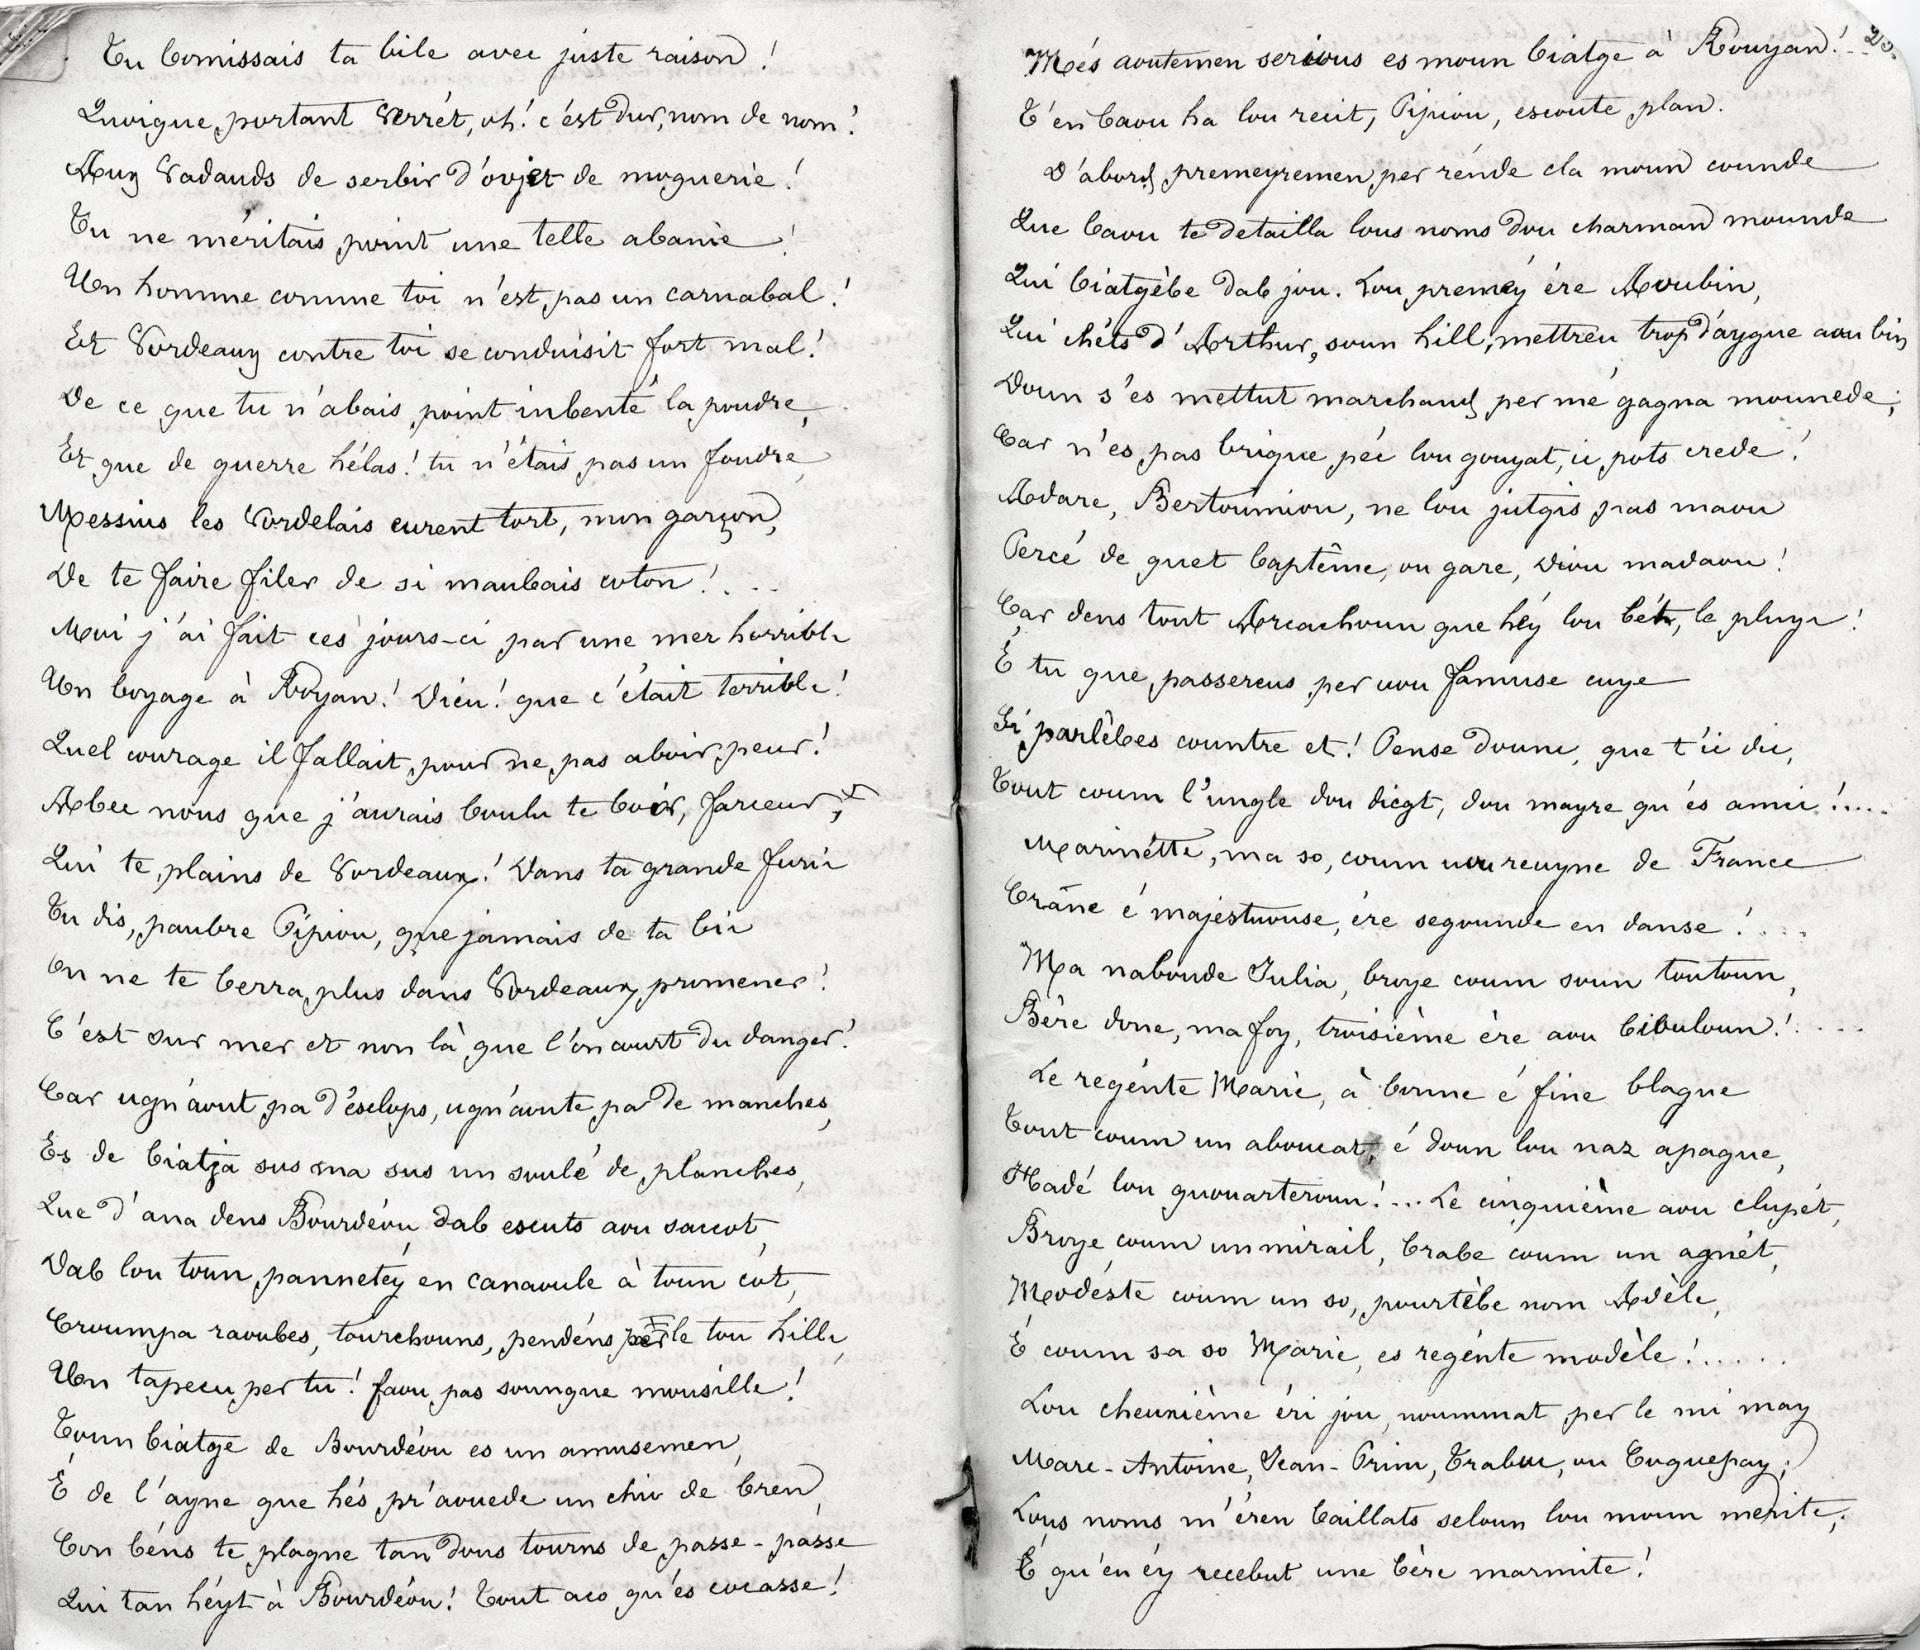 Tu bomissais ta bile avec juste raison !
Quoique portant Verrét, oh! c'est dur, nom de nom !
Aux Vadauds de serbir d'ovjet de moquerie !
Tu ne méritais point une telle abanie !
Un homme comme toi n'est pas un carnabal !
Et Vordeaux contre toi se conduisit fort mal !
De ce que tu n'abais point inbenté la poudre,
Et que de guerre hélas ! tu n'étais pas un foudre,
Messius les Vordelais eurent tort, mon garçon,
De te faire filer de si maubais coton ! ...
Moi j'ai fait ces jours-ci par une mer horrible
Un boyage à Royan ! Dieu ! que c'était terrible !
Quel courage il fallait pour ne pas aboir peur !
Abec nous que j'aurais boulu te boir, farceur,
Qui te plains de Vordeaux ! Dans ta grande furie
Tu dis, paubre Pipiou, que jamais de ta bie
On ne te berra plus dans Vordeaux promener !
C'est sur mer et non là que l'on court du danger !
Car ugn'aout pa d'esclops, ugn'aoute pa de manches,
Es de biatja sus ma sus un soulé de planches,
Que d'ana dens Bourdéou dab escuts aou saccot,
Dab lou toun pannetéy en canaoule à toun cot,
Croumpa raoubes, tourchouns, pendéns per le tou hille,
Un tapecu per tu ! faou pas soungue mousille !
Toun biatge de Bourdéou es un amusemen,
É de l'ayne que hés pr'aouede un chic de bren,
Bon béns te plagne tan dous tourns de passe-passe
Qui tan héyt à Bourdéou ! Tout aco qu'és cocasse !
Més aoutemen serious es moun biatge à Rouyan ! 20.
T'en baou ha lou recit, Pipiou, escoute plan.
D'abord, premeyremen, per rénde cla moun counde
Que baou te detailla lous noms dou charman mounde
Qui biatgèbe dab jou. Lou preméy ére Aoubin,
Qui chéts d'Arthur, soun hill, mettreu trop d'aygue aou bin
Doun s'és mettut marchand per mé gagna mounede ;
Car n'és pas brigue péc lou gouyat, ic pots crede !
Adare, Bertoumiou, ne lou jutgis pas maou
Percé de quet baptême, ou gare, Diou madaou !
Car dens tout Arcachoun que héy lou bét, le pluye !
É tu que passereus per uou famuse cuye
Si parlèbes countre et ! Pense dounc, que t'ic dic,
Tout coum l'ungle dou dicgt, dou mayre qu'és amic !....
Marinétte, ma so, coum uou reuyne de France
Crâne é majéstuouse, ére segounde en danse ! ....
Ma naboude Julia, broye coum soun toutoun,
Bère done, ma foy, troisième ère aou bibuloun ! ....
Le regénte Marie, à bonne é fine blague
Tout coum un aboucat, é doun lou naz apague,
Hadé lou quouarteroun ! ... Le cinquième aou clupét,
Broye coum un mirail, brabe coum un agnét,
Modéste coum un so, pourtèbe nom Adèle,
É coum sa so Marie, es regénte modèle ! .....
Lou cheuxième éri jou, noummat per le mi may
Marc-Antoine, Jean-Prim, Trabuc, ou Cuquefay ;
Lous noms m'éren baillats seloun lou moun merite,
É qu'en éy recebut une bère marmite !